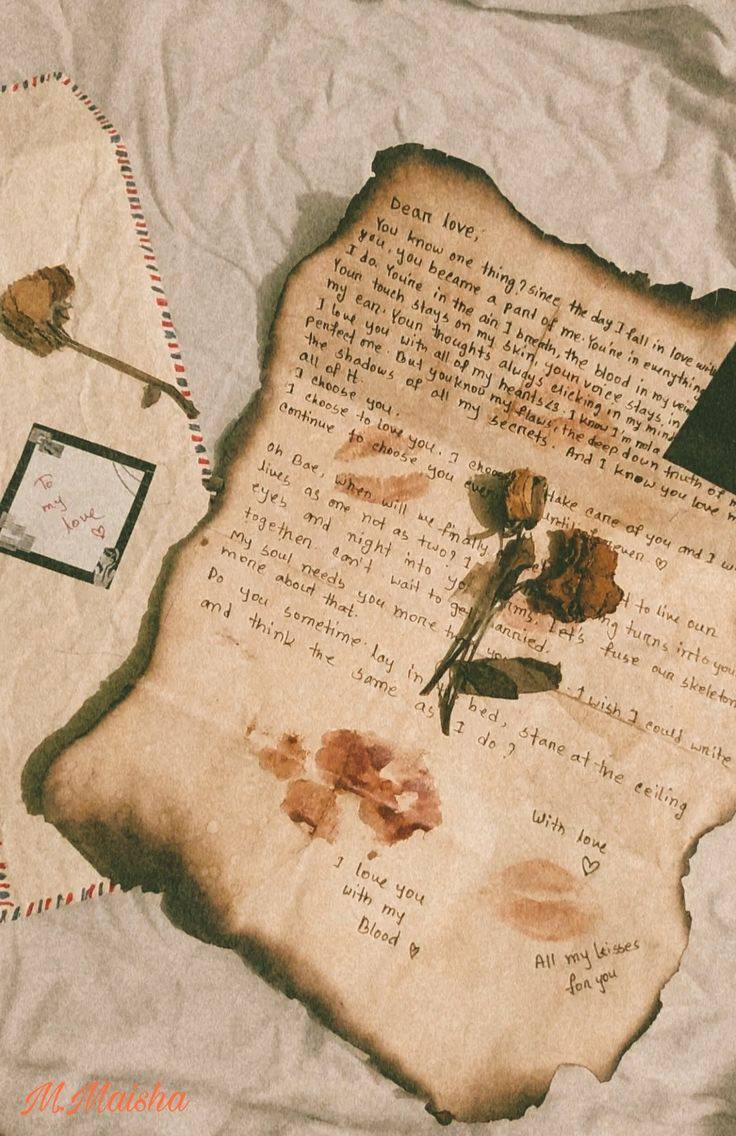 To
my
love
Dear love,
You know one thing? Since the day I fall in love with
you, you became a part of me. You're in everything
I do. You're in the air I breath, the blood in my vein
Your touch stays on my skin, your voice stays in
my ear. Your thoughts always clicking in my mind
I love you with all of my hearts<3. I know I'm not a
perfect one. But you know my flaws, the deep down truth of m
the shadows of all my secrets. And I know you love m
all of it.
I choose you.
I choose to love you. I choo take care of you and I w
continue to choose you ever until forever. ♡
Oh Bae, when will we finally t to live our
lives as one not as two? I ng turns into you
eyes and night into yo rms. Let's fuse our skeleton
together. Can't wait to get married.
My soul needs you more th yo . I wish I could write
more about that.
Do you sometime lay in bed, stare at the ceiling
and think the same as I do?
With love
♡
I love you
with my
Blood ♡
All my kisses
for you
M.Maisha